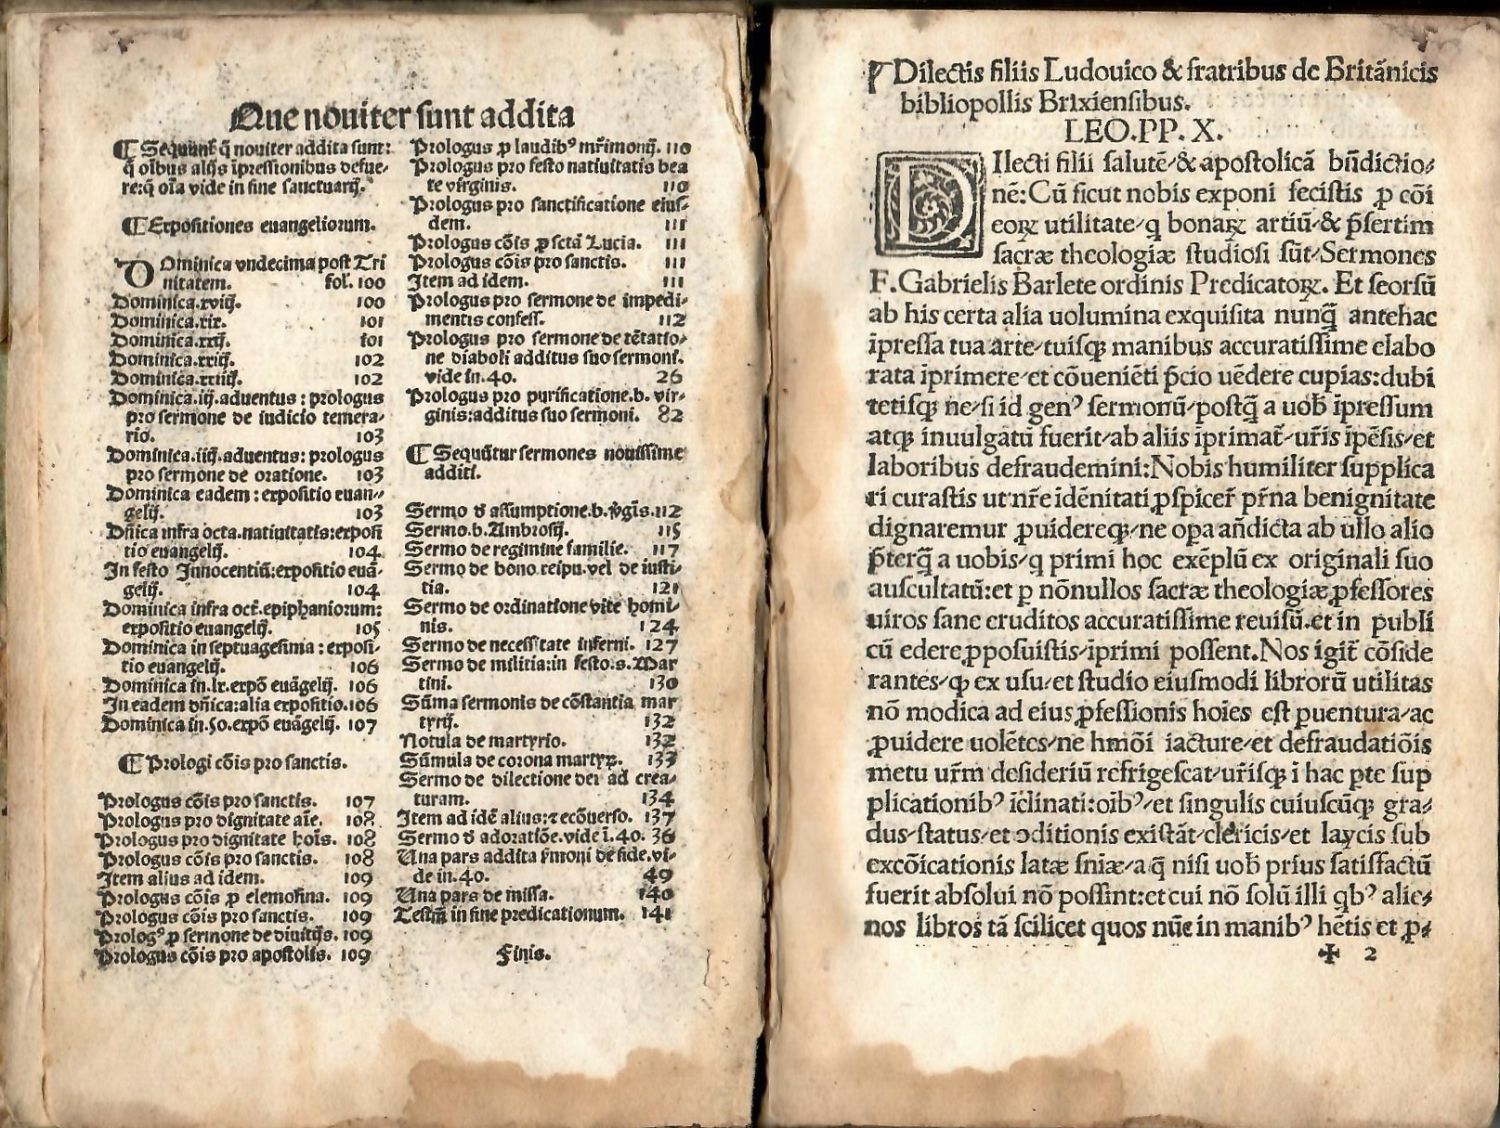 Que noviter sunt addita
¶ Sequunt̃ q̃ noviter addita sunt:
q̃ oĩbus alijs ĩpressionibus defue-
re: q̃ oĩa vide in fine sanctuarij.
¶ Expositiones euangeliorum.
DOminica vndecima post Tri
nitatem. fol. 100
Dominica.xviij. 100
Dominica.xix. 101
Dominica.xxij. 101
Dominica.xxiij. 102
Dominica.xxiiij. 102
Dominica.iij.aduentus: prologus
pro sermone de iudicio temera-
rio. 103
Dominica.iiij.aduentus: prologus
pro sermone de oratione. 103
Dominica eadem: expositio euan-
gelij. 103
Dñica infra octa.natiuitatis:exposi
tio euangelij. 104
In festo Innocentiũ:expositio euã-
gelij. 104
Dominica infra oct̃.epiphaniorum:
expositio euangelij. 105
Dominica in septuagesima: exposi-
tio euangelij. 106
Dominica in.lx.expõ euãgelij. 106
In eadem dñica:alia expositio. 106
Dominica in.50.expõ euãgelij. 107
¶ Prologi cõis pro sanctis.
Prologus cõis pro sanctis. 107
Prologus pro dignitate aĩe. 108
Prologus pro dignitate hoĩs. 108
Prologus cõis pro sanctis. 108
Item alius ad idem. 109
Prologus cõis ꝑ elemosina. 109
Prologus cõis pro sanctis. 109
Prologꝰ ꝓ sermone de diuitijs. 109
Prologus cõis pro apostolis. 109
Prologus ꝓ laudibꝰ mr̃imonij. 110
Prologus pro festo natiuitatis bea
te virginis. 110
Prologus pro sanctificatione eius-
dem. 111
Prologus cõis ꝓ sctã Lucia. 111
Prologus cõis pro sanctis. 111
Item ad idem. 111
Prologus pro sermone de impedi-
mentis confess. 112
Prologus pro sermone de tẽtatio-
ne diaboli additus suo sermoni.
vide in.40. 26
Prologus pro purificatione.b.vir-
ginis:additus suo sermoni. 82
¶ Sequũtur sermones nouissime
additi.
Sermo d̃ assumptione.b.ṽgĩs. 112
Sermo.b.Ambrosij. 115
Sermo de regimine familie. 117
Sermo de bono reipu.vel de iusti-
tia. 121
Sermo de ordinatione vite homi-
nis. 124
Sermo de necessitate inferni. 127
Sermo de militia:in festo.s.Mar
tini. 130
Sũma sermonis de cõstantia mar
tyrij. 132
Notula de martyrio. 132
Sũmula de corona martyꝝ. 133
Sermo de dilectione dei ad crea-
turam. 134
Item ad idẽ alius:⁊ ecõuerso. 137
Sermo d̃ adoratiõe.vide ĩ.40. 36
Una pars addita sm̃oni de fide.vi-
de in.40. 49
Una pars de missa. 140
in fine predicationum. 141
Finis.
Dilectis filiis Ludouico & fratribus de Britãnicis
bibliopollis Brixiensibus.
LEO.PP. X.
DIlecti filii salutẽ/& apostolicã bñdictio/
nẽ: Cũ sicut nobis exponi fecistis ꝓ cõi
eoꝝ utilitate/q bonaꝝ artiũ/& p̃sertim
sacræ theologiæ studiosi sũt/Sermones
F. Gabrielis Barlete ordinis Predicatoꝝ. Et seorsũ
ab his certa alia uolumina exquisita nunq̃ antehac
ĩpressa tua arte/tuisqꝫ manibus accuratissime elabo
rata ĩprimere/et cõueniẽti p̃cio uẽdere cupias:dubi
tetisqꝫ ne/si id genꝰ sermonũ/postq̃ a uob̃ ĩpressum
atqꝫ inuulgatũ fuerit/ab aliis ĩprimat̃/ur̃is ĩpẽsis/et
laboribus defraudemini: Nobis humiliter supplica
ri curastis ut nr̃e idẽnitati ꝓspicer̃ pr̃na benignitate
dignaremur ꝓuidereqꝫ/ne opa añdicta ab ullo alio
p̃terq̃ a uobis/q primi hoc exẽplũ ex originali suo
auscultatũ:et p nõnullos sacræ theologiæ ꝓfessores
uiros sane eruditos accuratissime reuisũ.et in publi
cũ edere ꝓposuistis/ĩprimi possent. Nos igit̃ cõside
rantes/qꝫ ex usu/et studio eiusmodi librorũ utilitas
nõ modica ad eius ꝓfessionis hoĩes est puentura/ac
ꝓuidere uolẽtes/ne hmõi iacture/et defraudatiõis
metu ur̃m desideriũ refrigescat/ur̃isqꝫ ĩ hac pte sup
plicationibꝰ ĩclinati:oĩbꝰ/et singulis cuiuscũqꝫ gra/
dus/status/et ↄditionis existãt/clericis/et laycis sub
excõicationis latæ sñiæ/a q̃ nisi uob̃ prius satisfactũ
fuerit absolui nõ possint:et cui nõ solũ illi qbꝰ alie/
nos libros tã scilicet quos nũc in manibꝰ hẽtis et ꝓ/
✠ 2